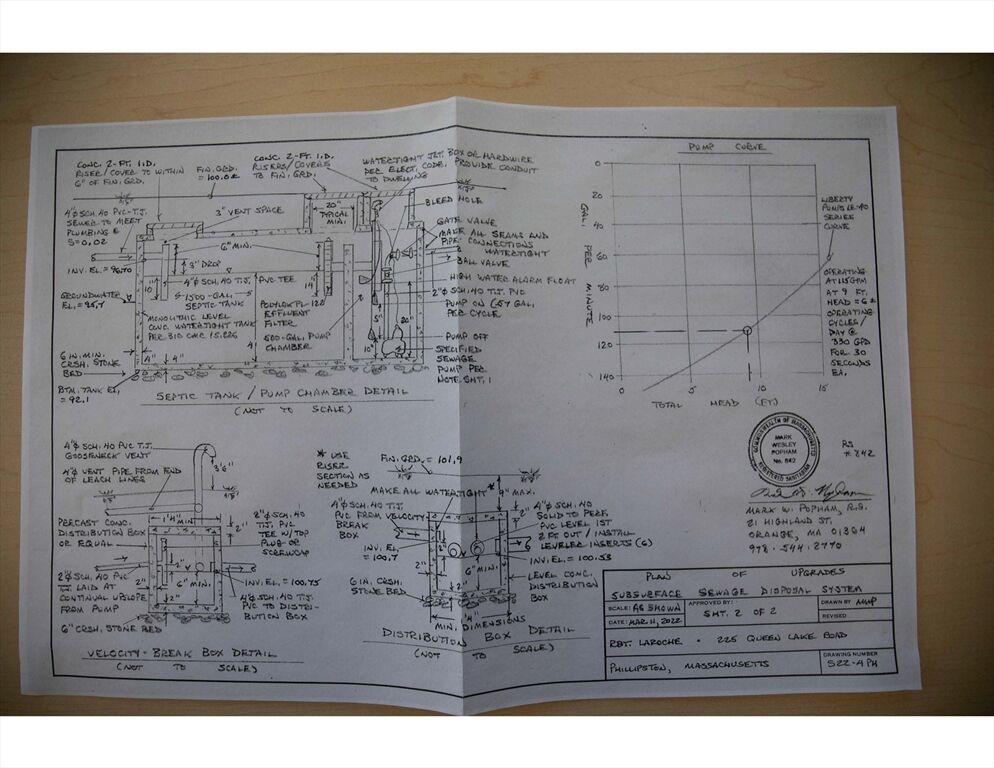 CONC. 2-FT. I.D.
RISER/COVER TO WITHIN
6" OF FIN. GRD.
FIN. GRD.
= 100.0±
CONC. 2-FT. I.D.
RISERS/COVERS
TO FIN. GRD.
WATERTIGHT JCT. BOX OR HARDWIRE
PER ELECT. CODE, PROVIDE CONDUIT
TO DWELLING
BLEED HOLE
4"φ SCH. 40 PVC-T.J.
SEWER TO MEET
PLUMBING &
S=0.02
3" VENT SPACE
20"
TYPICAL
MIN.
GATE VALVE
MAKE ALL SEAMS AND
PIPE CONNECTIONS
WATERTIGHT
BALL VALVE
6" MIN.
3" DROP
INV. EL. = 96.70
10"
4"φ SCH. 40 T.J. PVC TEE
14"
HIGH WATER ALARM FLOAT
2"φ SCH. 40 T.J. PVC
GROUNDWATER
EL. = 95.7
1500-GAL.
SEPTIC TANK
POLYLOK PL-122
EFFLUENT
FILTER
PUMP ON (57 GAL.
PER CYCLE
MONOLITHIC LEVEL
CONC. WATERTIGHT TANK
PER 310 CMR 15.226
500-GAL. PUMP
CHAMBER
5"
20"
10"
PUMP OFF
SPECIFIED
SEWAGE
PUMP PER
NOTE SHT. 1
6 IN. MIN.
CRSH. STONE
BED
4"
4"
4'
BTM. TANK EL.
= 92.1
SEPTIC TANK / PUMP CHAMBER DETAIL
(NOT TO SCALE)
PUMP CURVE
0
20
40
60
80
100
120
140
GAL. PER MINUTE
0
5
10
15
TOTAL HEAD (FT)
LIBERTY
PUMPS LE-40
SERIES
CURVE
OPERATING
AT 115 GPM
AT 9 FT.
HEAD = 6±
OPERATING
CYCLES/
DAY @
330 GPD
FOR 30
SECONDS
EA.
4"φ SCH. 40 PVC T.J.
GOOSENECK VENT
3'6"
4"φ VENT PIPE FROM END
OF LEACH LINES
PRECAST CONC.
DISTRIBUTION BOX
OR EQUAL
1'4" MIN.
2"
2"φ SCH. 40
T.J. PVC
TEE W/TOP
PLUG OR
SCREWCAP
2"φ SCH. 40 PVC
T.J. LAID AT
CONTINUAL UPSLOPE
FROM PUMP
2"
6" MIN.
2"
INV. EL. = 100.75
4"φ SCH. 40 T.J.
PVC TO DISTRI-
BUTION BOX
6" CRSH. STONE BED
VELOCITY-BREAK BOX DETAIL
(NOT TO SCALE)
* USE
RISER
SECTION AS
NEEDED
FIN. GRD. = 101.9
MAKE ALL WATERTIGHT
*
9" MAX.
4"φ SCH. 40 T.J.
PVC FROM VELOCITY
BREAK
BOX
4"φ SCH. 40
SOLID TO PERF.
PVC LEVEL 1ST
2 FT OUT / INSTALL
LEVELER INSERTS (6)
INV. EL.
= 100.7
2"
2"
INV. EL. = 100.53
6 IN. CRSH.
STONE BED
2"
6" MIN.
2"
LEVEL CONC.
DISTRIBUTION
BOX
1'4"
MIN. DIMENSIONS
DISTRIBUTION BOX DETAIL
(NOT TO SCALE)
COMMONWEALTH OF MASSACHUSETTS
MARK
WESLEY
POPHAM
No. 842
REGISTERED SANITARIAN
RS
#842
MARK W. POPHAM, R.S.
21 HIGHLAND ST.
ORANGE, MA 01364
978-544-2770
PLAN OF UPGRADES
SUBSURFACE SEWAGE DISPOSAL SYSTEM
SCALE: AS SHOWN
APPROVED BY:
DRAWN BY MWP
DATE: MAR 11, 2022
SHT. 2 OF 2
REVISED
RBT. LAROCHE - 225 QUEEN LAKE ROAD
PHILLIPSTON, MASSACHUSETTS
DRAWING NUMBER
S22-4PH